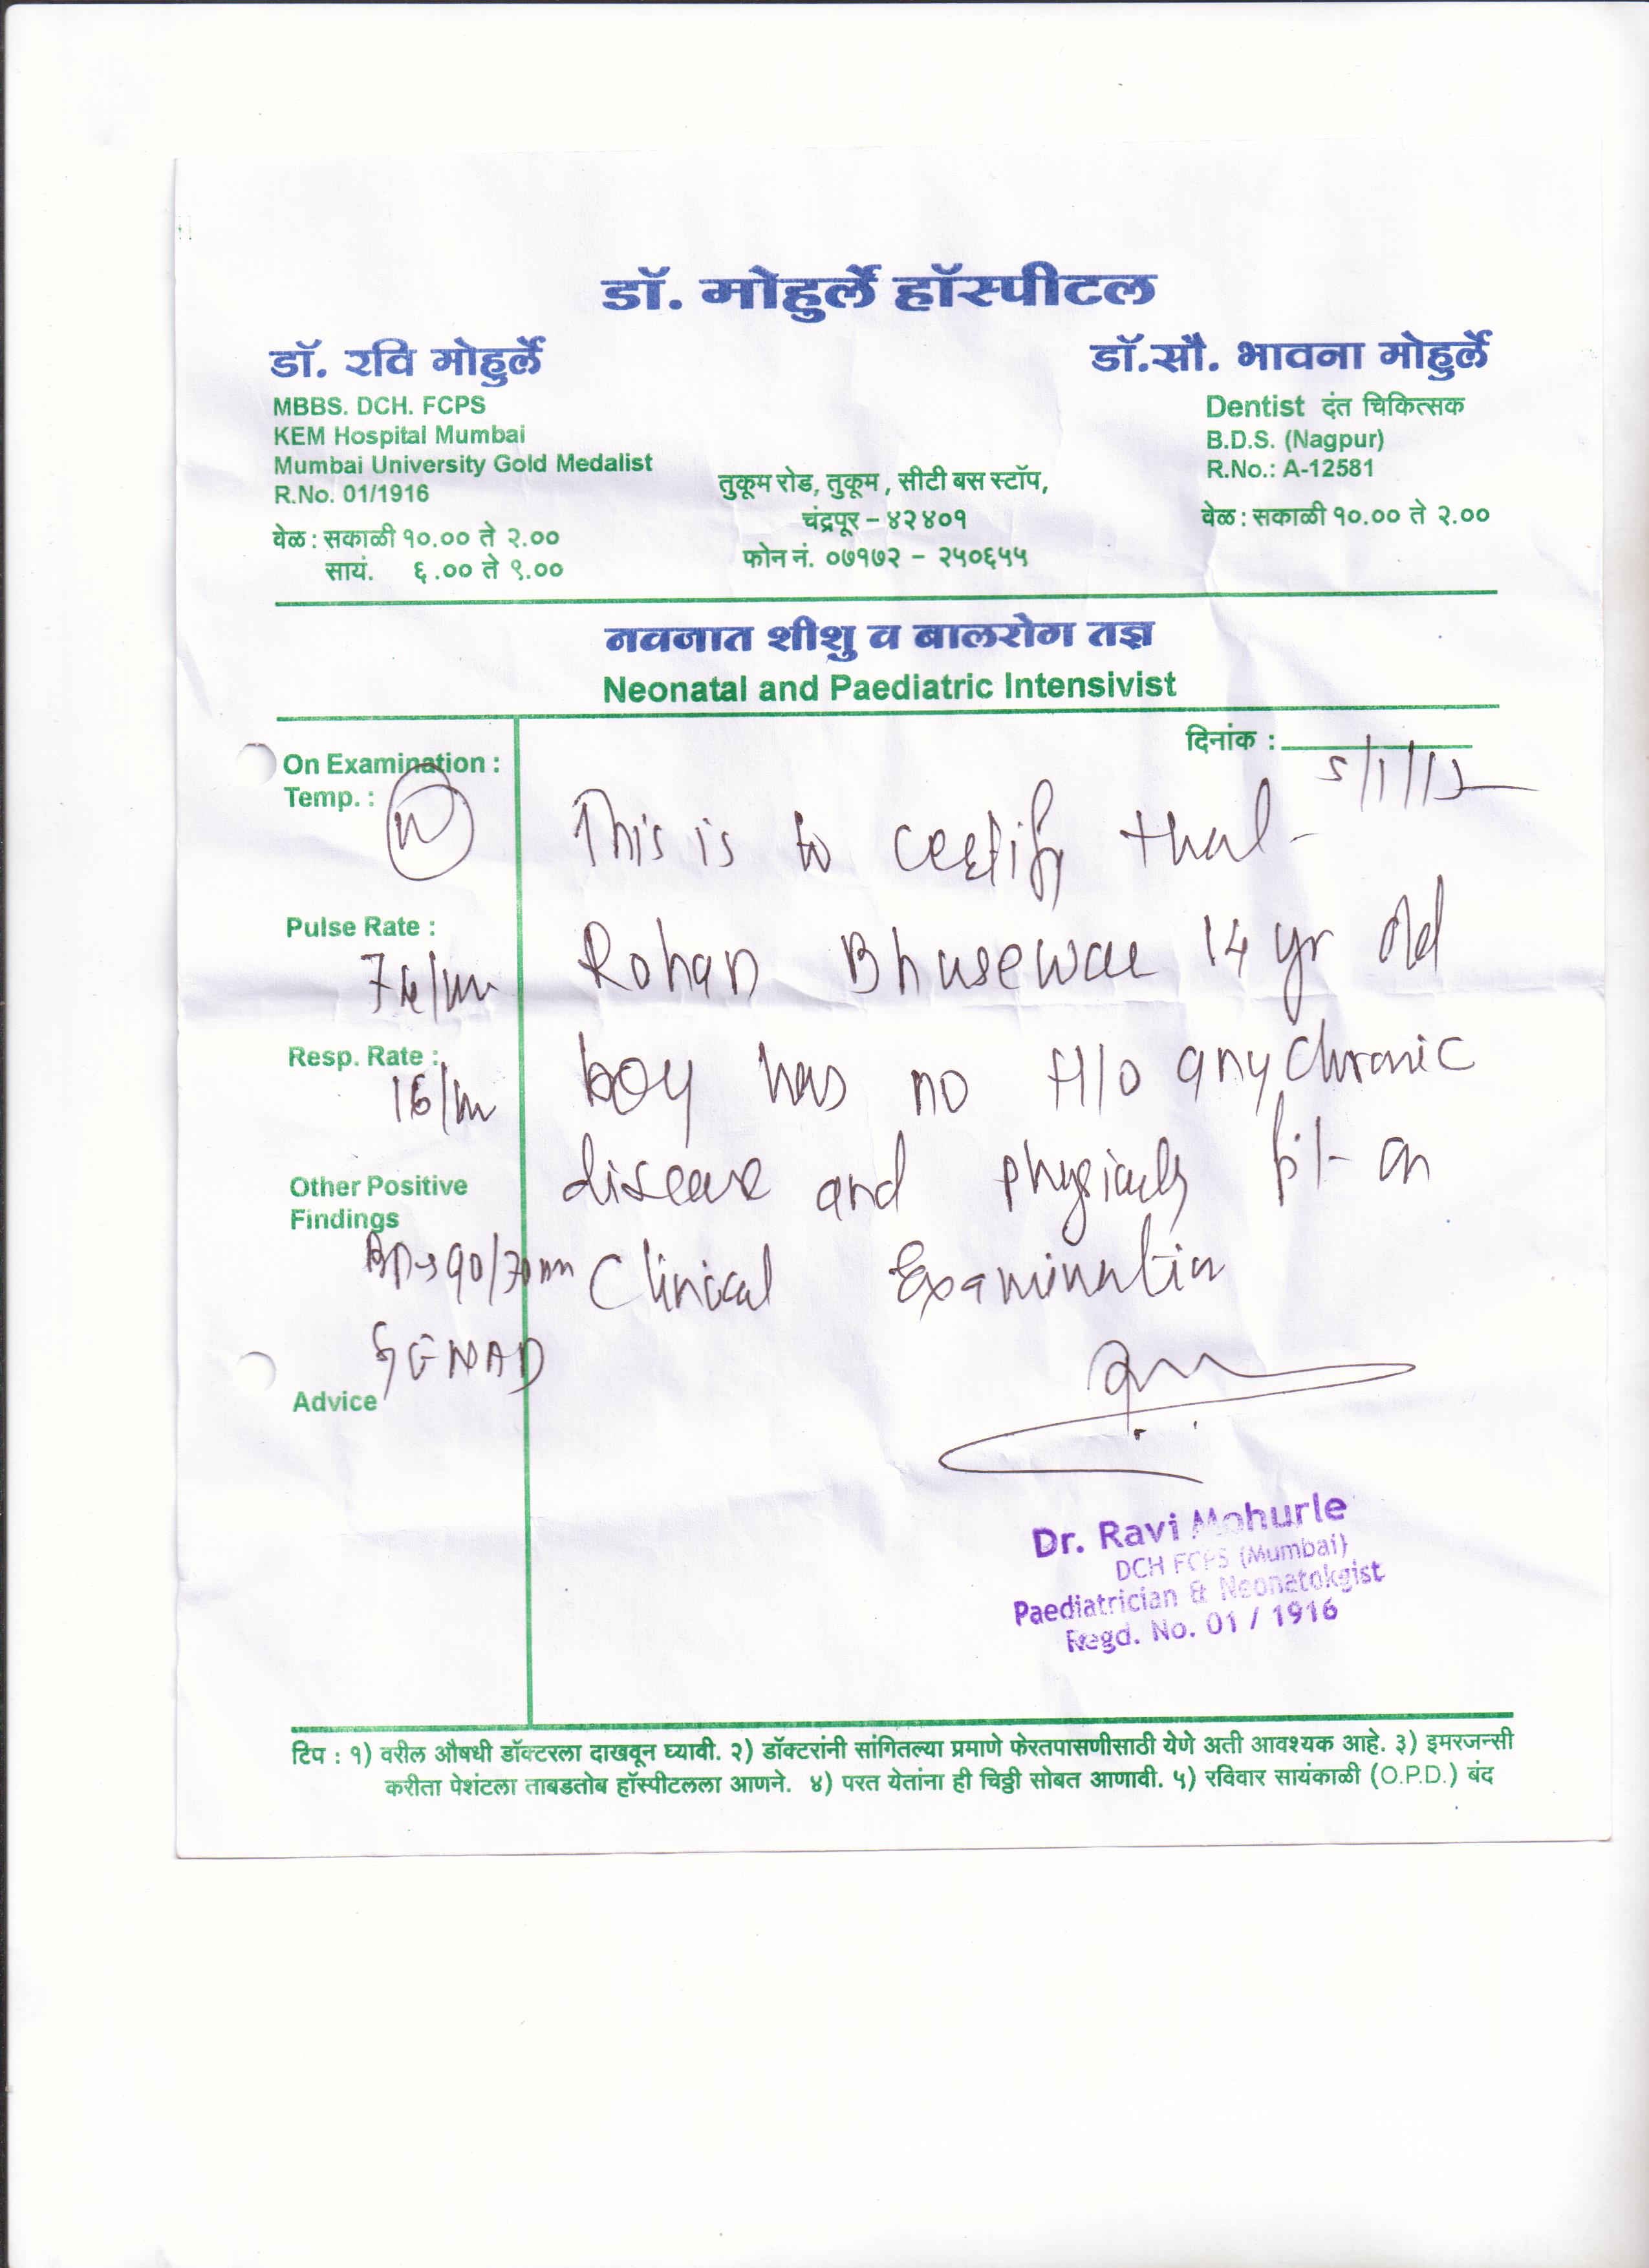 डॉ. मोहुर्ले हॉस्पीटल
डॉ. रवि मोहुर्ले
MBBS. DCH. FCPS
KEM Hospital Mumbai
Mumbai University Gold Medalist
R.No. 01/1916
वेळ : सकाळी १०.०० ते २.००
सायं. ६.०० ते ९.००
तुकूम रोड, तुकूम , सीटी बस स्टॉप,
चंद्रपूर – ४२४०१
फोन नं. ०७१७२ – २५०६५५
डॉ.सौ. भावना मोहुर्ले
Dentist दंत चिकित्सक
B.D.S. (Nagpur)
R.No.: A-12581
वेळ : सकाळी १०.०० ते २.००
नवजात शीशु व बालरोग तज्ञ
Neonatal and Paediatric Intensivist
दिनांक :
5/1/12
On Examination :
Temp. : N
Pulse Rate :
74/m
Resp. Rate :
16/m
Other Positive
Findings
BP→90/70mm
S/E NAD
Advice
This is to certify that
Rohan 14 yr old
boy has no H/O any chronic
disease and physically fit on
Clinical Examination
Dr. Ravi Mohurle
DCH FCPS (Mumbai)
Paediatrician & Neonatokgist
Regd. No. 01 / 1916
टिप : १) वरील औषधी डॉक्टरला दाखवून घ्यावी. २) डॉक्टरांनी सांगितल्या प्रमाणे फेरतपासणीसाठी येणे अती आवश्यक आहे. ३) इमरजन्सी
करीता पेशंटला ताबडतोब हॉस्पीटलला आणने. ४) परत येतांना ही चिठ्ठी सोबत आणावी. ५) रविवार सायंकाळी (O.P.D.) बंद